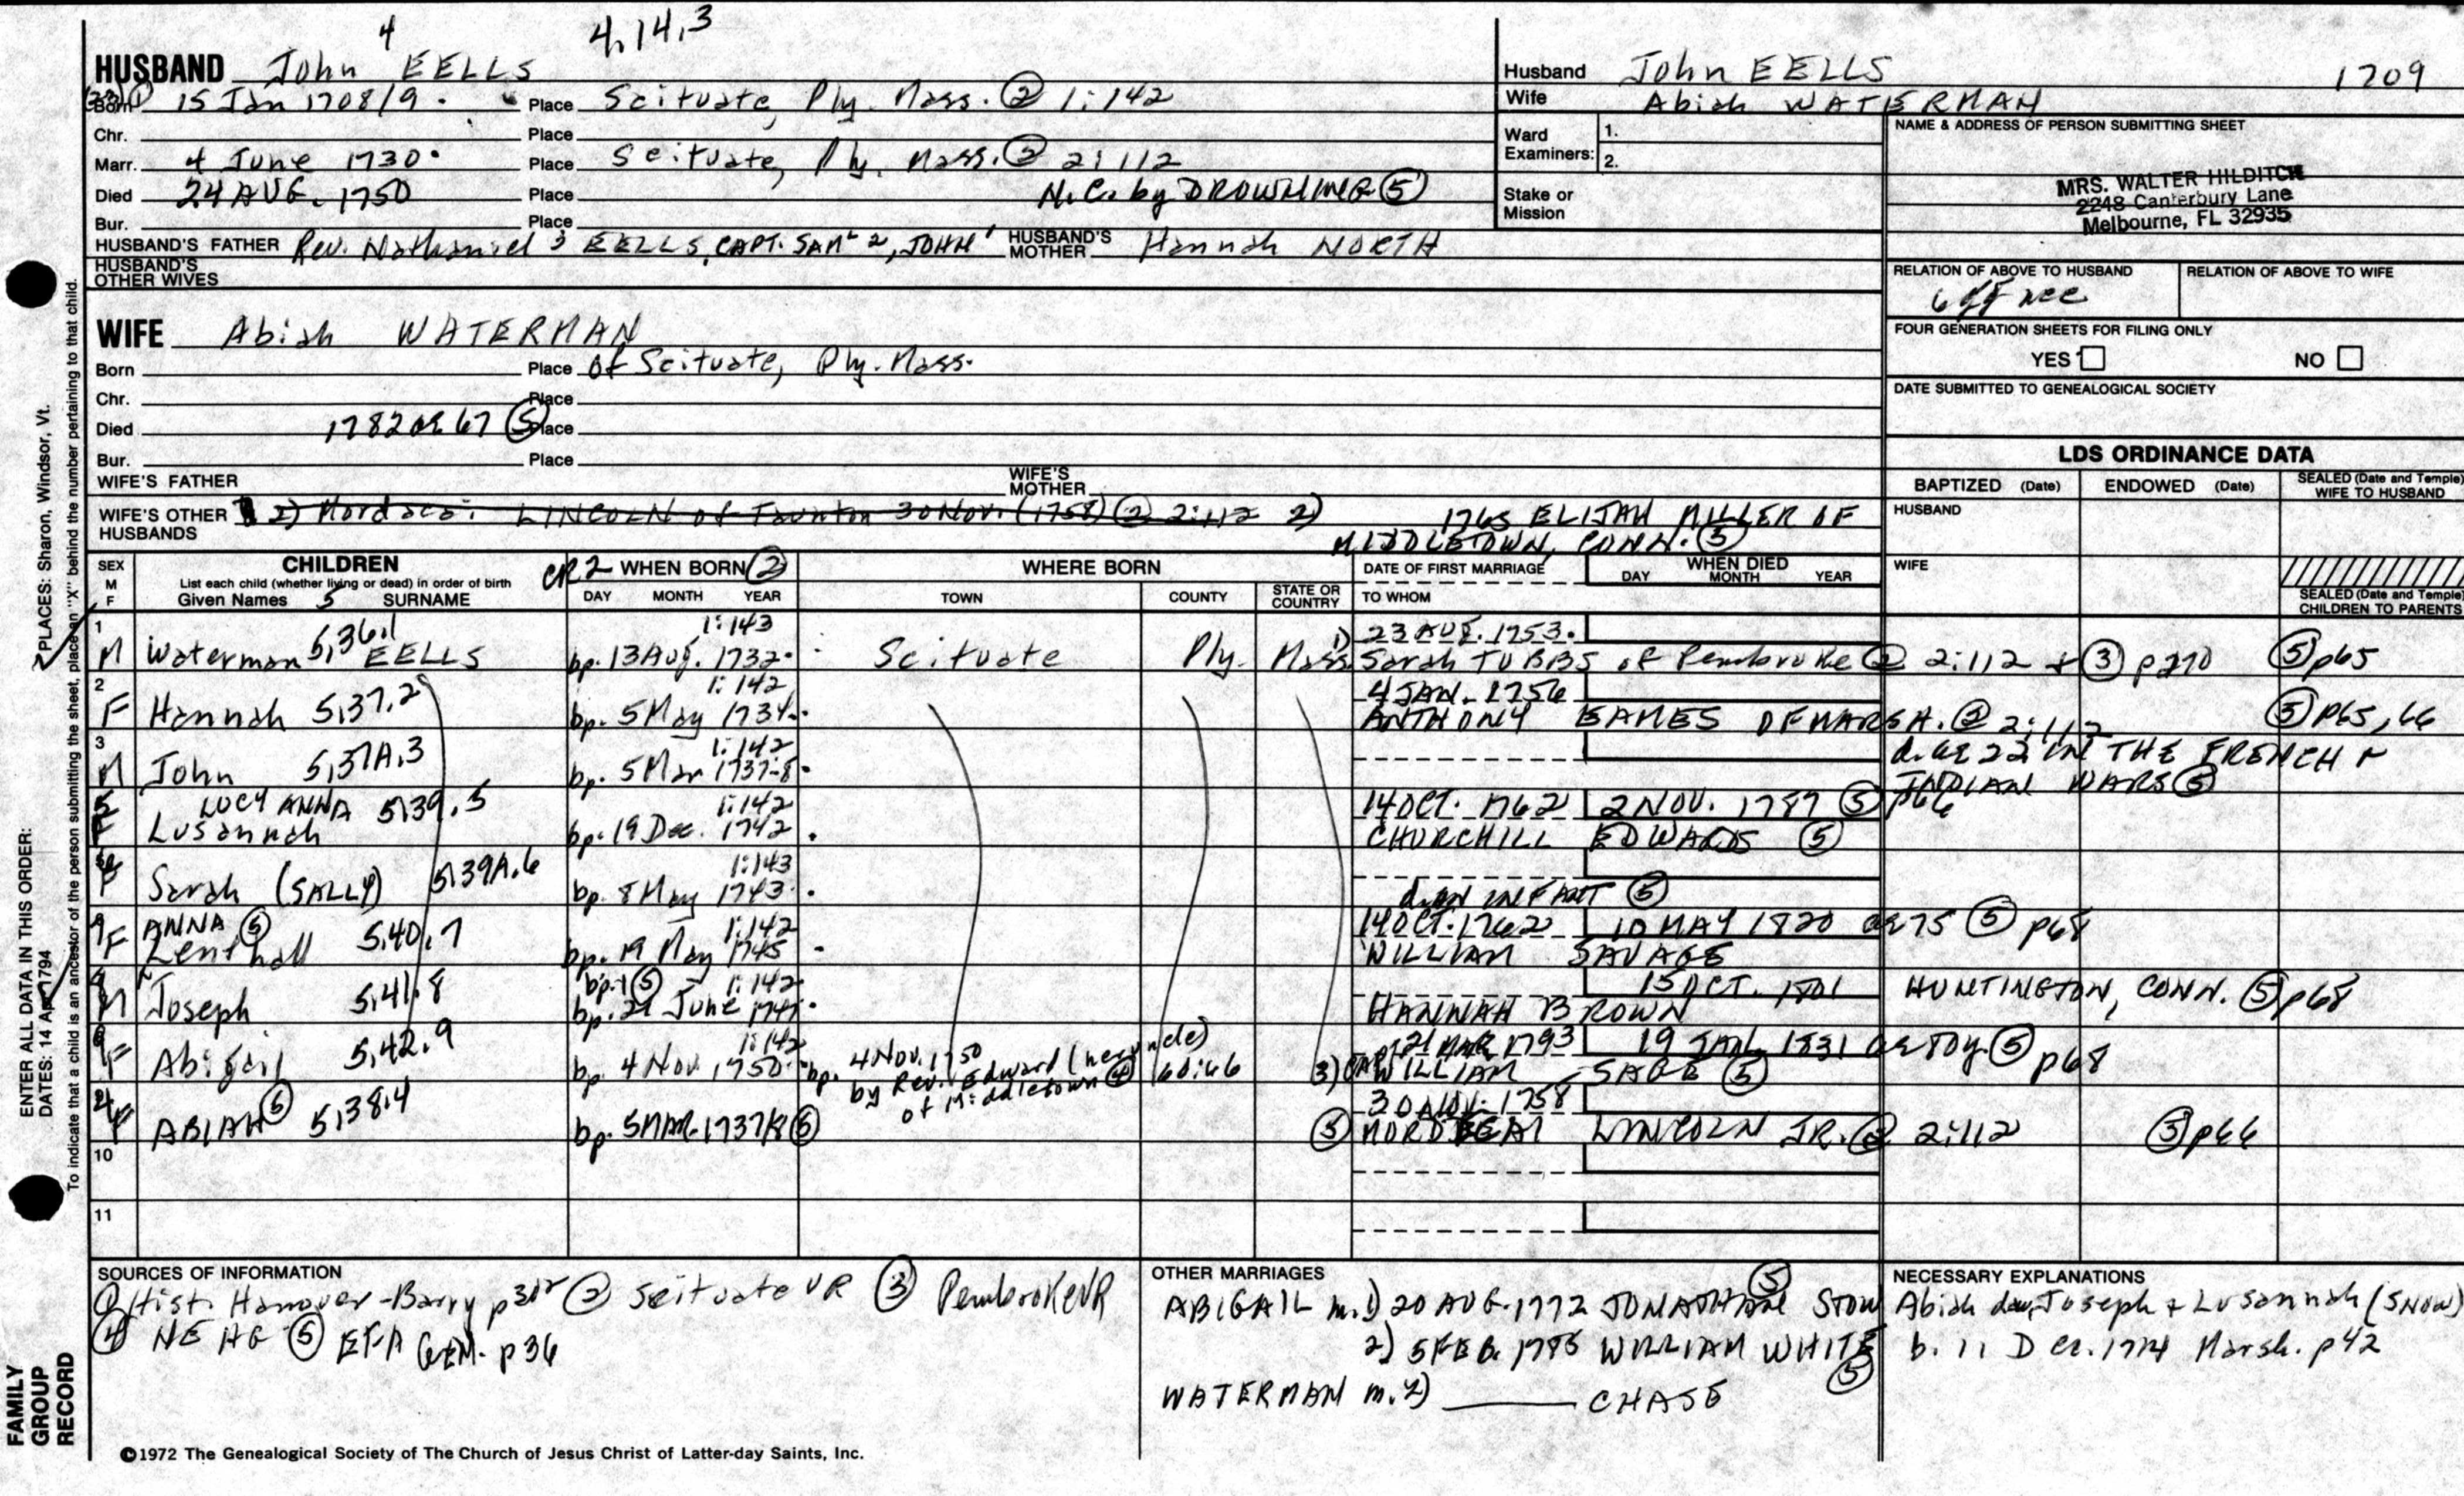 4 4,14,3
HUSBAND John EELLS
Born 15 Jan 1708/9. Place Scituate, Ply. Mass. ② 1:142
Chr. Place
Marr. 4 June 1730. Place Scituate, Ply. Mass. ② 2:112
Died 24 AUG. 1750 Place N.C. by DROWNING ⑤
Bur. Place
HUSBAND'S FATHER Rev. Nathaniel 3 EELLS, CAPT. SAML 2, JOHN 1 HUSBAND'S MOTHER Hannah NORTH
HUSBAND'S OTHER WIVES
WIFE Abiah WATERMAN
Born Place of Scituate, Ply. Mass.
Chr. Place
Died 1782 or 67 ⑤ Place
Bur. Place
WIFE'S FATHER WIFE'S MOTHER
WIFE'S OTHER HUSBANDS 2) Mordecai LINCOLN of Taunton 30 Nov. (1758) ② 2:112 2) 1765 ELIJAH MILLER OF
MIDDLETOWN, CONN. ⑤
Husband John EELLS 1709
Wife Abiah WATERMAN
Ward Examiners: 1.
2.
Stake or Mission
NAME & ADDRESS OF PERSON SUBMITTING SHEET
MRS. WALTER HILDITCH
2248 Canterbury Lane
Melbourne, FL 32935
RELATION OF ABOVE TO HUSBAND RELATION OF ABOVE TO WIFE
FOUR GENERATION SHEETS FOR FILING ONLY
YES NO
DATE SUBMITTED TO GENEALOGICAL SOCIETY
LDS ORDINANCE DATA
BAPTIZED (Date) ENDOWED (Date) SEALED (Date and Temple) WIFE TO HUSBAND
HUSBAND
WIFE
SEALED (Date and Temple) CHILDREN TO PARENTS
SEX M F
CHILDREN
List each child (whether living or dead) in order of birth
Given Names 5 SURNAME
CR2 WHEN BORN ②
DAY MONTH YEAR
WHERE BORN
TOWN COUNTY STATE OR COUNTRY
DATE OF FIRST MARRIAGE
TO WHOM
WHEN DIED
DAY MONTH YEAR
1 1:143 1) 23 AUG. 1753.
M Waterman 5,36.1 EELLS bp. 13 Aug. 1732. Scituate Ply. Mass. Sarah TUBBS of Pembroke ② 2:112 + ③ p270 ⑤ p65
2 1:142 4 JAN. 1756
F Hannah 5,37.2 bp. 5 May 1734. ANTHONY EAMES OF MARSH. ② 2:112 ⑤ P65, 66
3 1:142 d. ae 22 IN THE FRENCH +
M John 5,37A.3 bp. 5 Mar 1737-8. INDIAN WARS ⑤
5 LUCY ANNA 5,39.5 1:142 14 OCT. 1762 2 NOV. 1787 ⑤ p66
F Lusannah bp. 19 Dec. 1742. CHURCHILL EDWARDS ⑤
1:143
F Sarah (SALLY) 5,39A.6 bp. 8 May 1743. d. AN INFANT ⑤
ANNA ⑤ 1:142 14 OCT. 1762 10 MAY 1820 ae 75 ⑤ p68
F Lenthall 5,40.7 bp. 19 May 1745 WILLIAM SAVAGE
bp. ⑤ 1:142 15 OCT. 1801 HUNTINGTON, CONN. ⑤ p68
M Joseph 5,41.8 bp. 21 June 1747. HANNAH BROWN
1:142 21 MAR 1793 19 JAN. 1831 ae 80y. ⑤ p68
F Abigail 5,42.9 bp. 4 Nov. 1750. bp. 4 Nov. 1750 by Rev. Edward (her uncle) of Middletown ④ 60:66 3) WILLIAM SAGE ⑤
30 NOV. 1758
F ABIAH ⑤ 5,38.4 bp. 5 MAR. 1737/8 ⑤ ⑤ MORDECAI LINCOLN JR. ② 2:112 ⑤ p66
10
11
SOURCES OF INFORMATION
① Hist. Hanover - Barry ② Scituate VR ③ Pembroke VR
④ NE HG ⑤ EFA GEN. p36
OTHER MARRIAGES
ABIGAIL m. 1) 20 AUG. 1772 JONATHAN STOW ⑤
2) 5 FEB. 1785 WILLIAM WHITE ⑤
WATERMAN m. 2) CHASE
NECESSARY EXPLANATIONS
Abiah dau. Joseph + Lusannah (SNOW)
b. 11 Dec. 1714 Marsh. p42
©1972 The Genealogical Society of The Church of Jesus Christ of Latter-day Saints, Inc.
ENTER ALL DATA IN THIS ORDER:
DATES: 14 Apr 1794
PLACES: Sharon, Windsor, Vt.
To indicate that a child is an ancestor of the person submitting the sheet, place an "X" behind the number pertaining to that child.
FAMILY
GROUP
RECORD